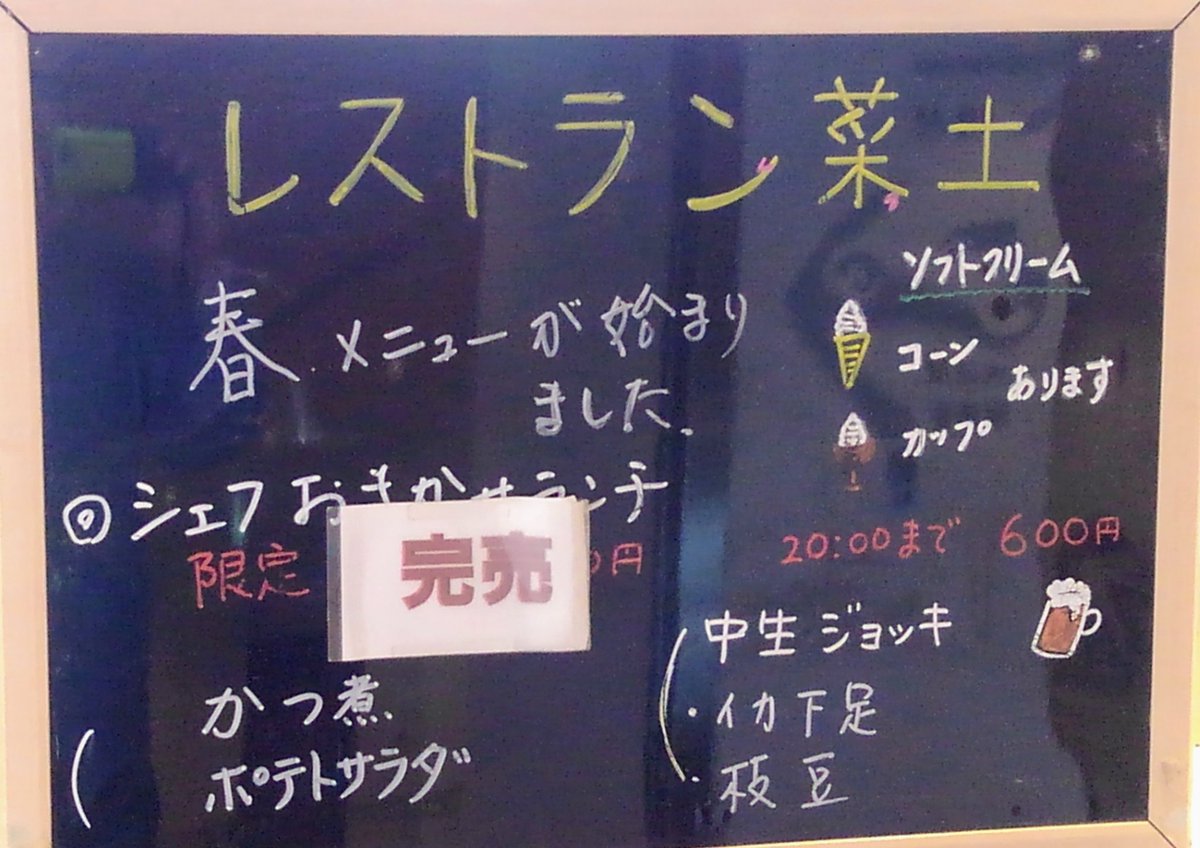 レストラン菜士
春メニューが始まり
ました。
ソフトクリーム
コーン
あります
カップ
◎シェフおまかせランチ
限定
完売
0円
20:00まで 600円
中生ジョッキ
・イカ下足
・枝豆
かつ煮
ポテトサラダ